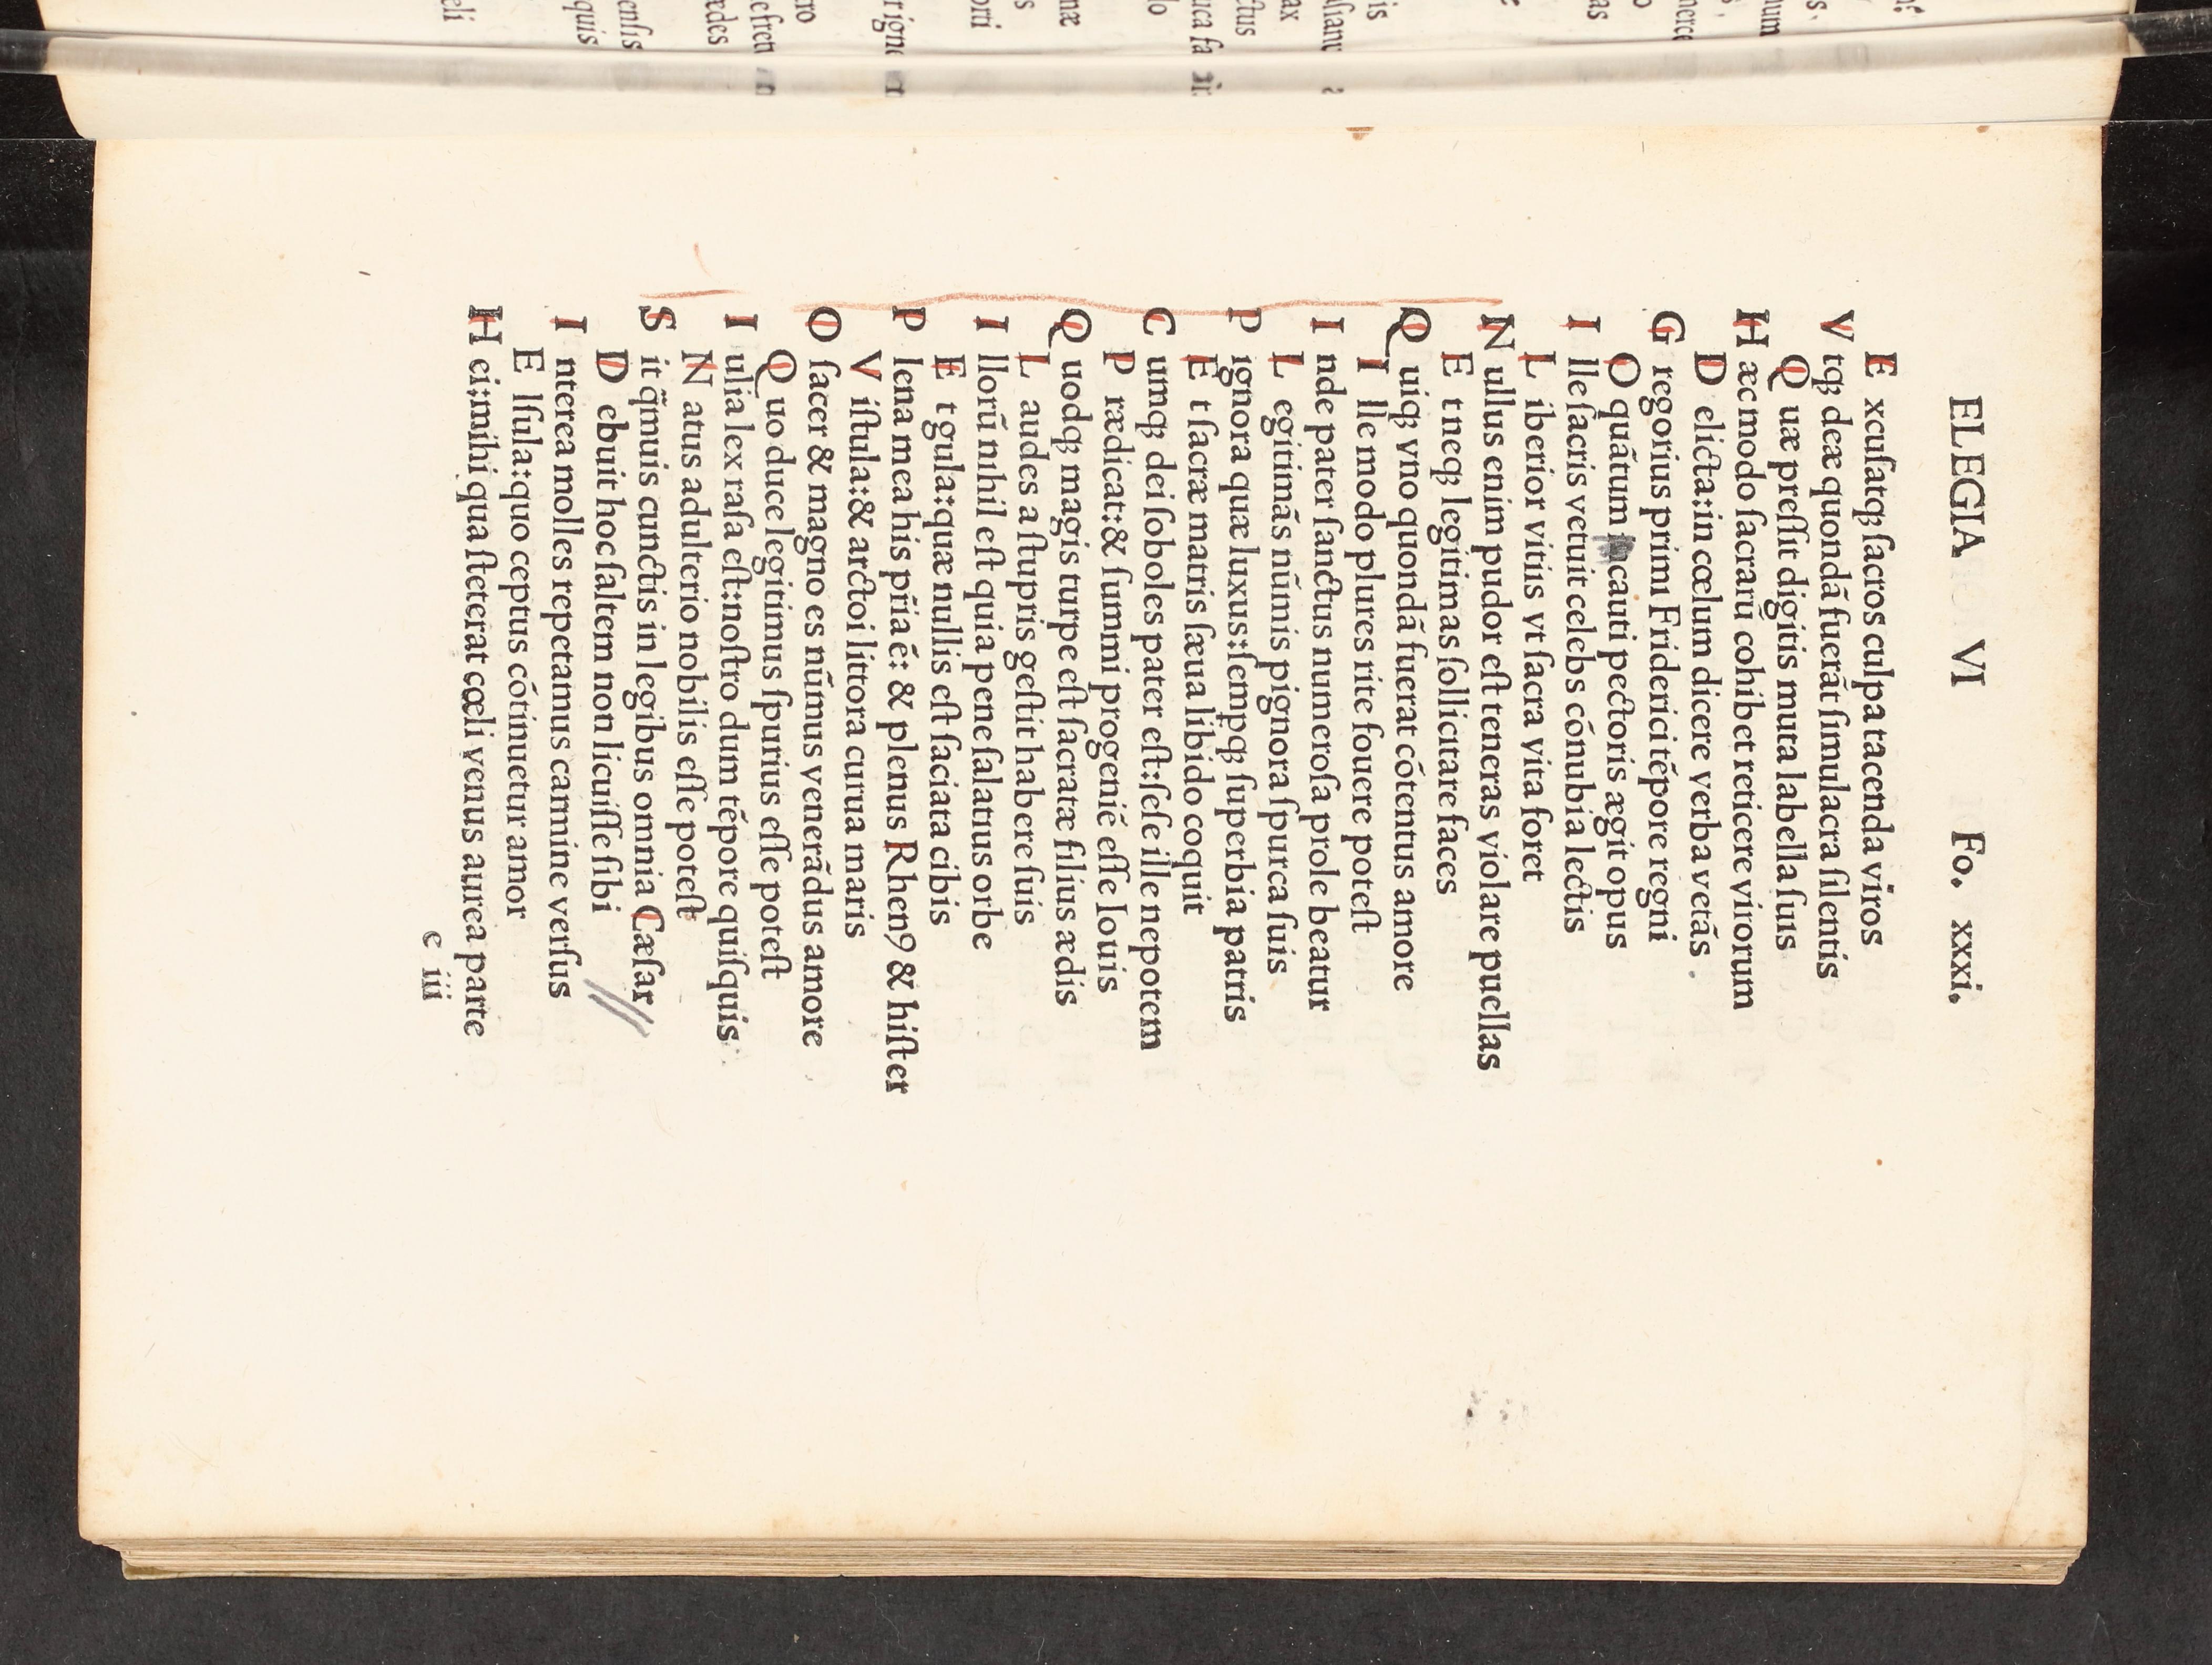 ELEGIA VI Fo. xxxi.
E xcuſatqꝫ ſacros culpa tacenda viros
V tqꝫ deæ quondã fuerãt ſimulacra ſilentis
Q uæ preſſit digitis muta labella ſuis
H æc modo ſacrarũ cohibet reticere virorum
D elicta:in cœlum dicere verba vetãs .
G regorius primi Friderici tẽpore regni
O quãtum incauti pectoris ægit opus
I lle ſacris vetuit celebs cónubia lectis
L iberior vitiis vt ſacra vita foret
N ullus enim pudor eſt teneras violare puellas
E t neqꝫ legitimas ſollicitare faces
Q uiqꝫ vno quondã fuerat cótentus amore
I lle modo plures rite fouere poteſt
I nde pater ſanctus numeroſa prole beatur
L egitimãs nũmis pignora ſpurca ſuis
P ignora quæ luxus:ſempqꝫ ſuperbia patris
E t ſacræ matris ſæua libido coquit
C umqꝫ dei ſoboles pater eſt:ſeſe ille nepotem
P rædicat:& ſummi progeniẽ eſſe Iouis
Q uodqꝫ magis turpe eſt ſacratæ filius ædis
L audes a ſtupris geſtit habere ſuis
I llorũ nihil eſt quia pene ſalatius orbe
E t gula:quæ nullis eſt ſaciata cibis
P lena mea his pr̃ia ẽ: & plenus Rhen9 & hiſter
V iſtula:& arctoi littora curua maris
O ſacer & magno es nũmus venerãdus amore
Q uo duce legitimus ſpurius eſſe poteſt
I ulia lex raſa eſt:noſtro dum tẽpore quiſquis
N atus adulterio nobilis eſſe poteſt
S it q̃muis cunctis in legibus omnia Cæſar
D ebuit hoc ſaltem non licuiſſe ſibi
I nterea molles repetamus carmine verſus
E lſula:quo ceptus cótinuetur amor
H ei:mihi qua ſteterat cœli venus aurea parte
e iii